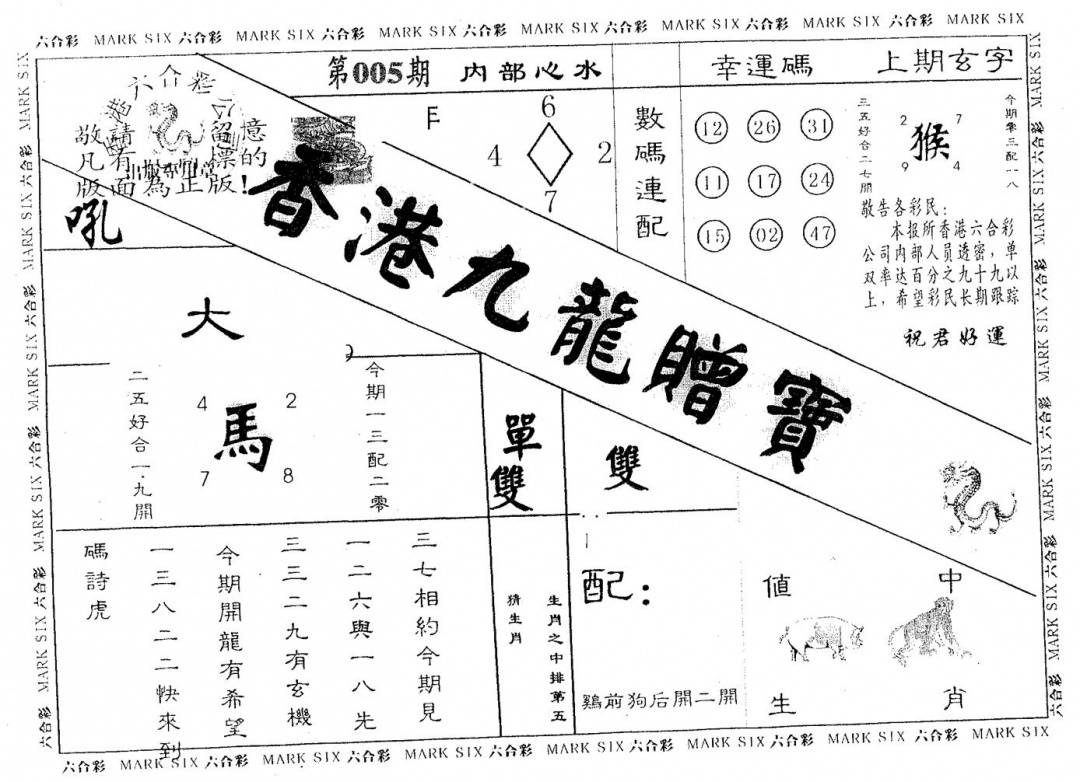 六合彩 MARK SIX 六合彩 MARK SIX 六合彩 MARK SIX 六合彩 MARK SIX 六合彩 MARK SIX 六合彩 MARK SIX 六合彩 MARK SIX
第005期 内部心水
幸運碼
上期玄字
六合彩
敬請留意
凡有標的
版面為正版!
吼
香港九龍贈寶
6
4 2
7
數碼連配
12 26 31
11 17 24
15 02 47
三五好合二七開
2 7
猴
9 4
今期零三配一八
敬告各彩民:
本报所香港六合彩
公司内部人员透密,单
双率达百分之九十九以
上,希望彩民长期跟踪
祝君好運
大
二五好合一.九開
4 2
馬
7 8
今期一三配二零
單雙
雙
三七相約今期見
一二六與一八先
三三二九有玄機
今期開龍有希望
一三八二二快來到
碼詩虎
生肖之中排第五
猜生肖
配:
鷄前狗后開二開
值 中
生 肖
六合彩 MARK SIX 六合彩 MARK SIX 六合彩 MARK SIX 六合彩 MARK SIX 六合彩 MARK SIX 六合彩 MARK SIX 六合彩 MARK SIX